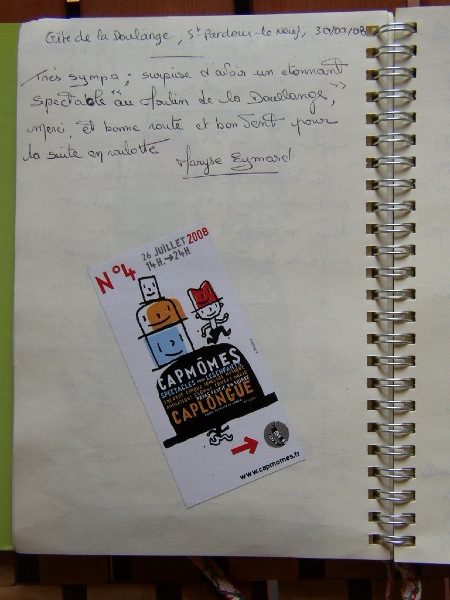 Gîte de la Doulange, St Pardoux-le Neuf, 30/07/08
Très sympa; surprise d'avoir un étonnant
spectacle au "Moulin de la Doulange",
merci, et bonne route et bon vent pour
la suite en roulotte
Maryse Eymard
N°4
26 JUILLET 2008
14H.→24H
CAPMÔMES
SPECTACLES POUR LES ENFANTS
CAPLONGUE
www.capmomes.fr